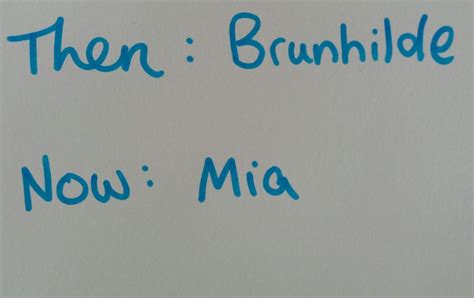 Then: Brunhilde
Now: Mia